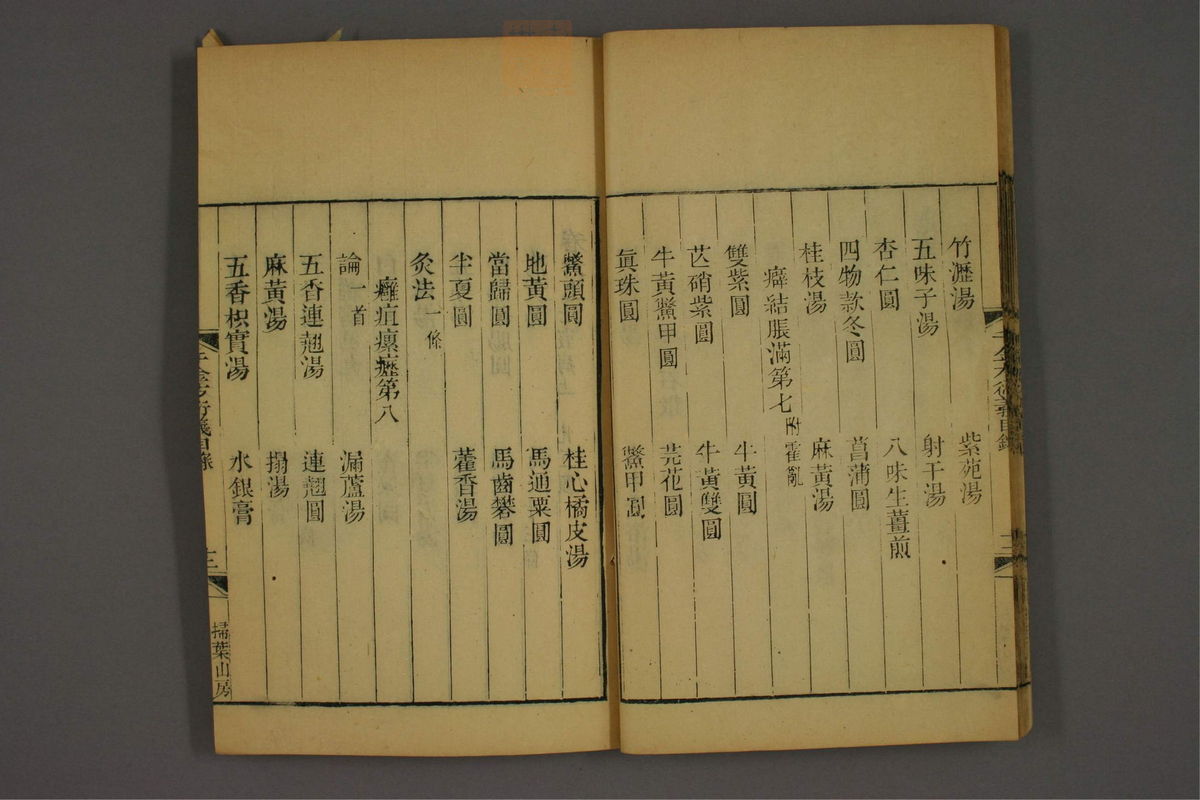 竹瀝湯　紫苑湯
五味子湯　射干湯
杏仁圓　八味生薑煎
四物款冬圓　菖蒲圓
桂枝湯　麻黃湯
癖結脹滿第七附霍亂
雙紫圓　牛黃圓
芒硝紫圓　牛黃雙圓
牛黃鱉甲圓　芫花圓
眞珠圓　鱉甲圓
鱉頭圓　桂心橘皮湯
地黃圓　馬通粟圓
當歸圓　馬齒礬圓
半夏圓　藿香湯
灸法一條
癰疽瘰癧第八
論一首　漏蘆湯
五香連翹湯　連翹圓
麻黃湯　搨湯
五香枳實湯　水銀膏
千金方衍義目錄　三　掃葉山房